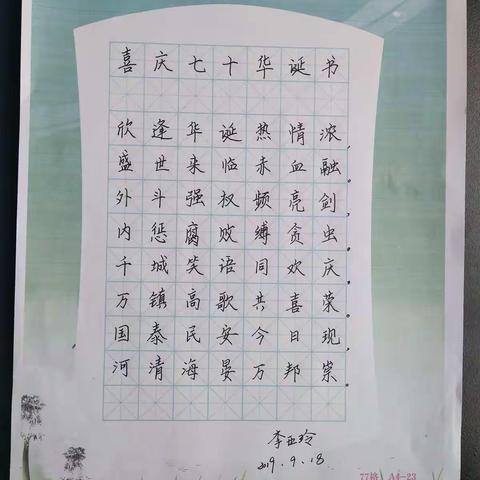 喜庆七十华诞书
欣逢华诞热情浓，
盛世来临赤血融。
外斗强权频亮剑，
内惩腐败缚贪虫。
千城笑语同欢庆，
万镇高歌共喜荣。
国泰民安今日现，
河清海晏万邦崇。
李亚玲
2019.9.18
77格 A4-23